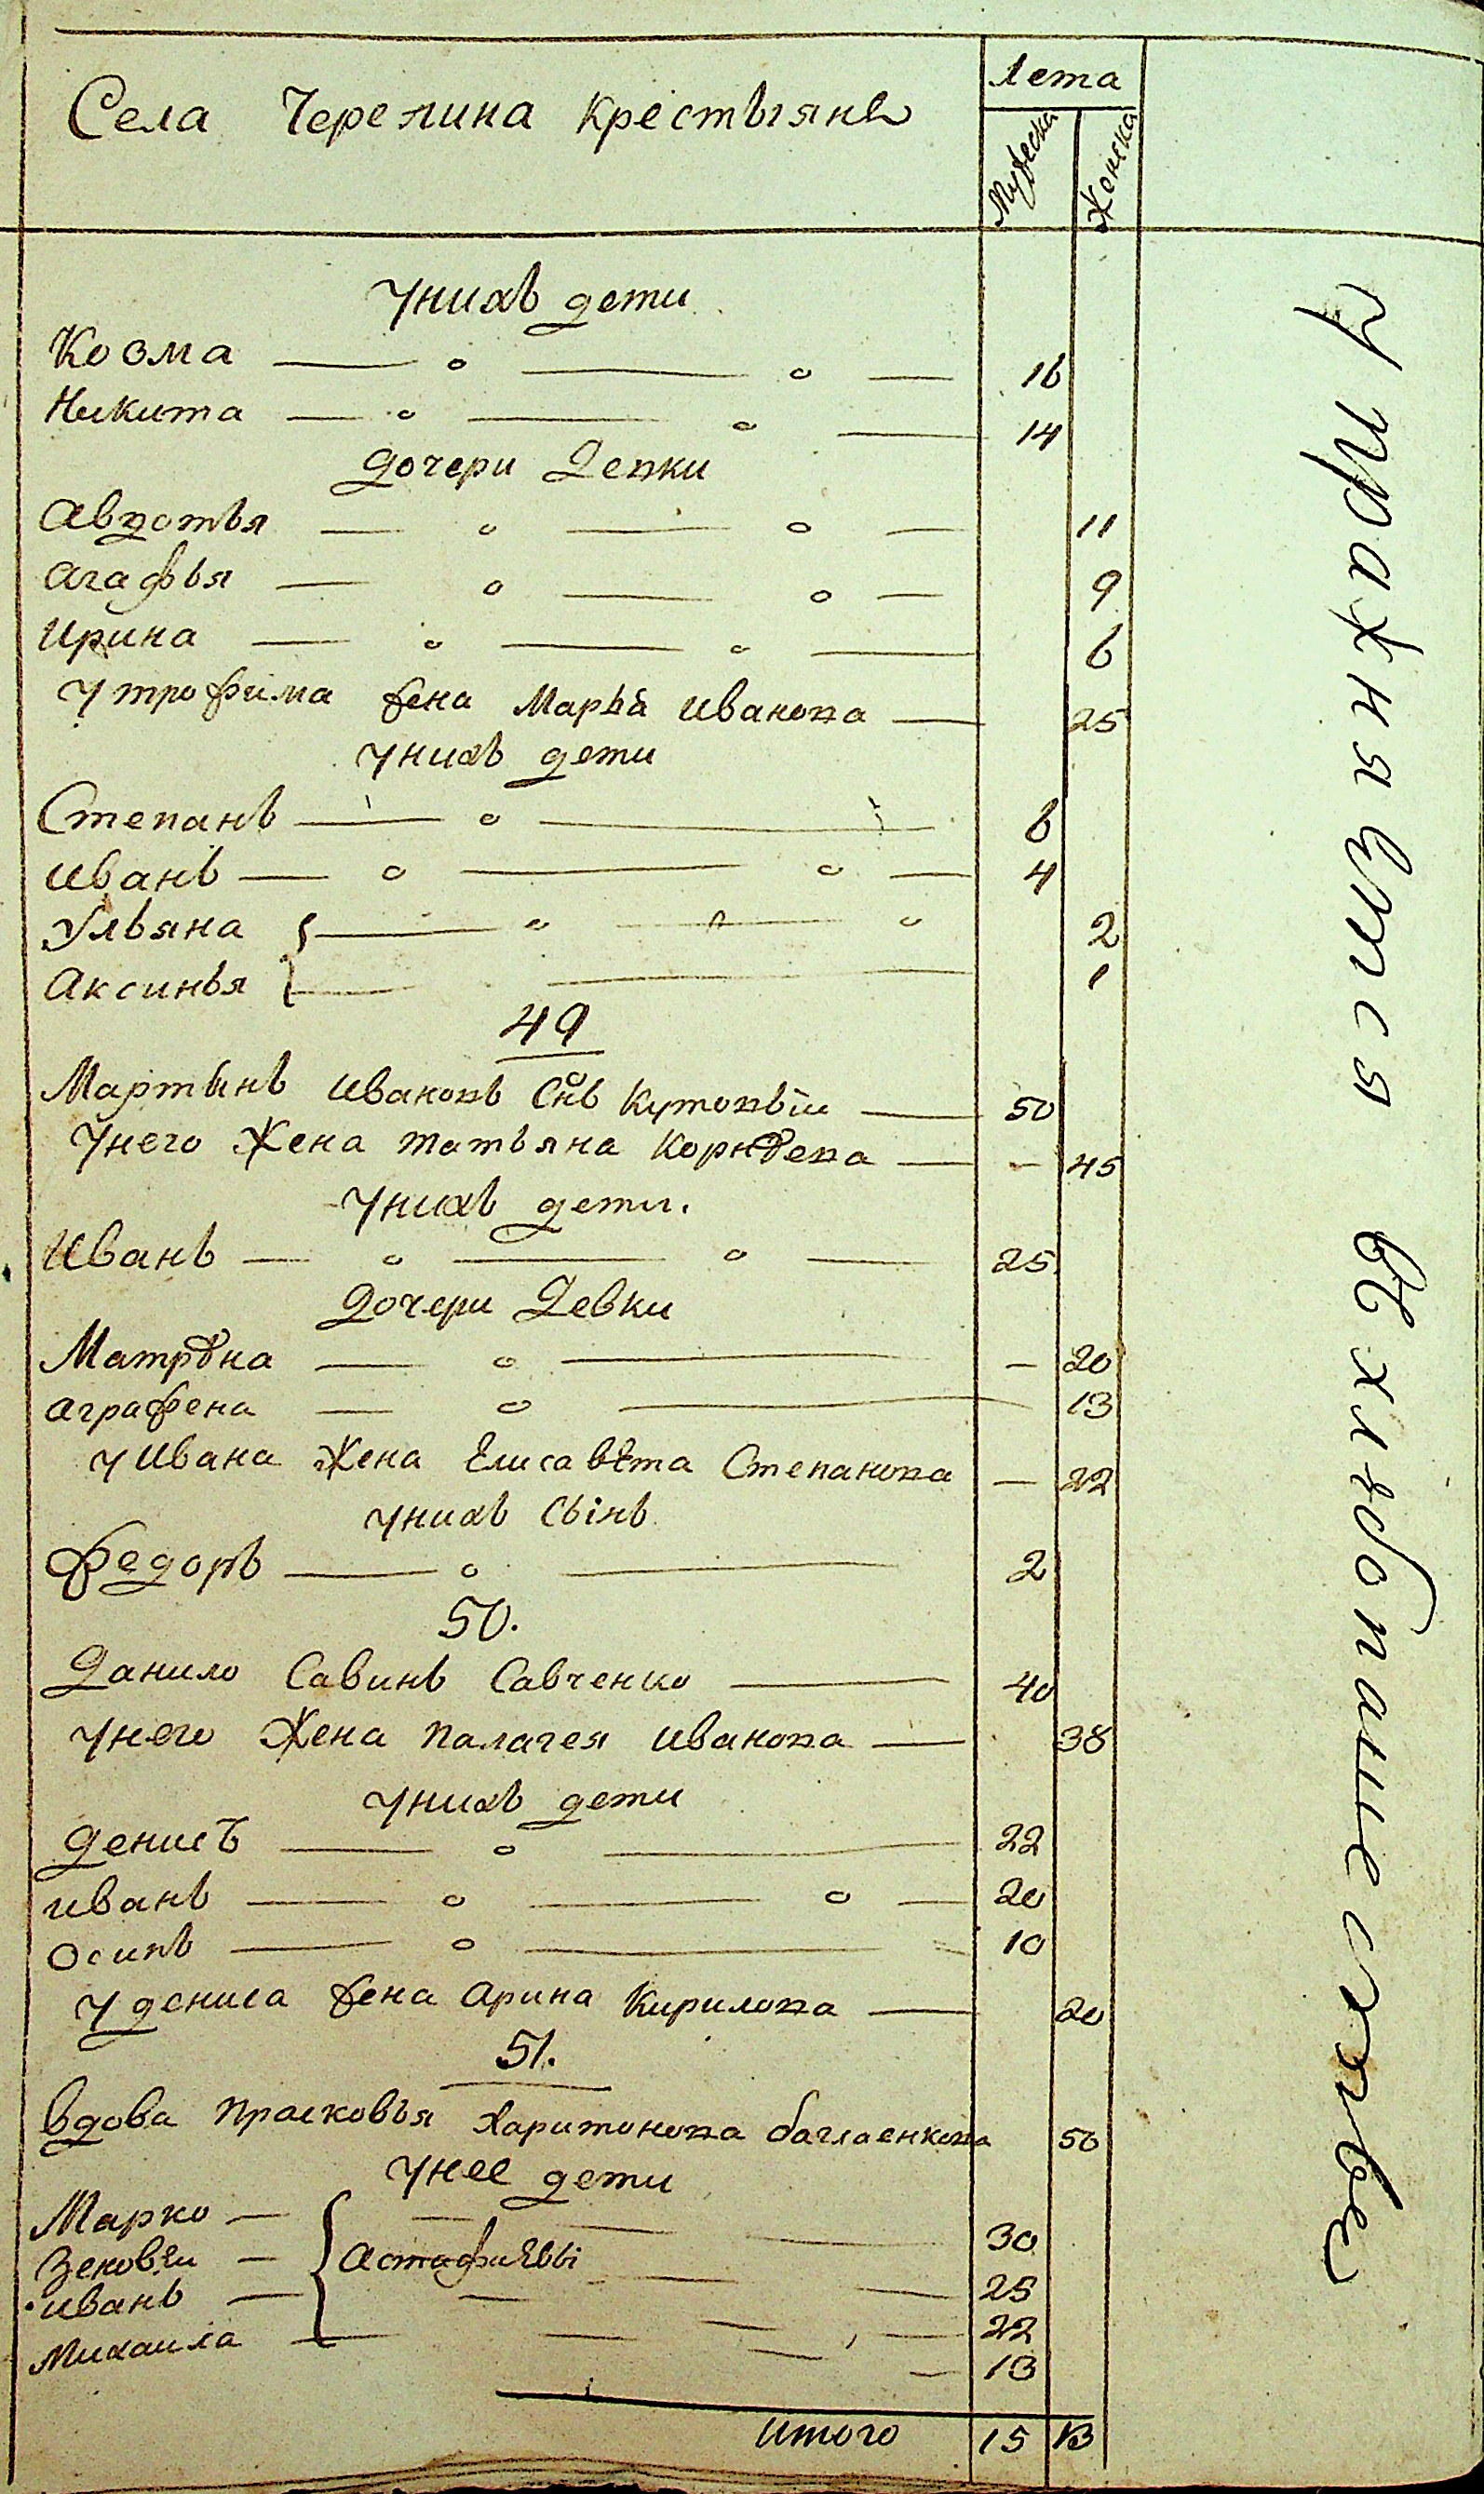 Села Черепина крестьяне
Лета
Мужеска
Женска
Унихъ дети
Козма 16
Никита 14
дочери Девки
Авдотья 11
Агафья 9
Ирина 6
У трофима жена Марья Иванова 25
Унихъ дети
Степанъ 6
Иванъ 4
Ульяна 2
Аксинья 1
49
Мартынъ Ивановъ Снъ Кутовый 50
Унего Жена татьяна Корнеева 45
Унихъ дети.
Иванъ 25
Дочери Девки
Матрона 20
аграфена 13
у Ивана Жена Елисавѣта Степанова 22
Унихъ Сынъ
Федоръ 2
50.
Данило Савинъ Савченко 40
Унего Жена палагея Иванова 38
Унихъ дети
Денисъ 22
Иванъ 20
Осипъ 10
У дениса жена Арина Кирилова 20
51.
Вдова прасковья Харитонова баглаенкова 50
Унее дети
Марко 30
Зеновѣи Астафиевы 25
Иванъ 22
Михаила 13
Итого 15 13
Упражняется в хлѣбопашестве